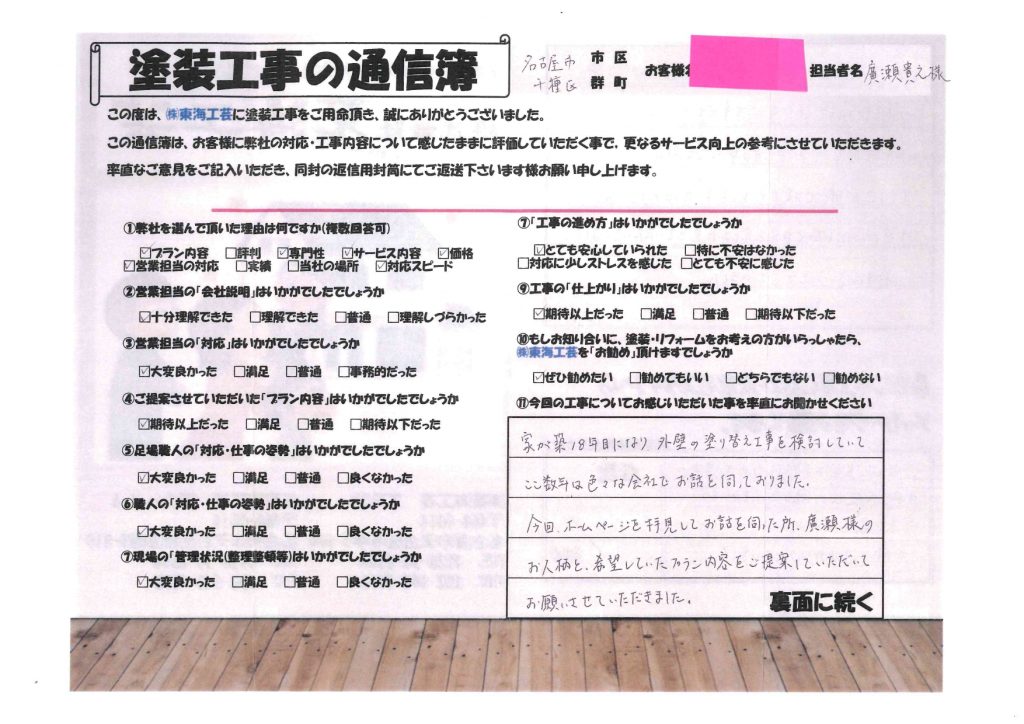 塗装工事の通信簿
名古屋市 市 区
千種区 群 町
お客様名
担当者名 廣瀬貴之様
この度は、㈱東海工芸に塗装工事をご用命頂き、誠にありがとうございました。
この通信簿は、お客様に弊社の対応・工事内容について感じたままに評価していただく事で、更なるサービス向上の参考にさせていただきます。
率直なご意見をご記入いただき、同封の返信用封筒にてご返送下さいます様お願い申し上げます。
①弊社を選んで頂いた理由は何ですか(複数回答可)
☑プラン内容 □評判 ☑専門性 ☑サービス内容 ☑価格
☑営業担当の対応 □実績 □当社の場所 ☑対応スピード
②営業担当の「会社説明」はいかがでしたでしょうか
☑十分理解できた □理解できた □普通 □理解しづらかった
③営業担当の「対応」はいかがでしたでしょうか
☑大変良かった □満足 □普通 □事務的だった
④ご提案させていただいた「プラン内容」はいかがでしたでしょうか
☑期待以上だった □満足 □普通 □期待以下だった
⑤足場職人の「対応・仕事の姿勢」はいかがでしたでしょうか
☑大変良かった □満足 □普通 □良くなかった
⑥職人の「対応・仕事の姿勢」はいかがでしたでしょうか
☑大変良かった □満足 □普通 □良くなかった
⑦現場の「管理状況(整理整頓等)はいかがでしたでしょうか
☑大変良かった □満足 □普通 □良くなかった
⑦「工事の進め方」はいかがでしたでしょうか
☑とても安心していられた □特に不安はなかった
□対応に少しストレスを感じた □とても不安に感じた
⑨工事の「仕上がり」はいかがでしたでしょうか
☑期待以上だった □満足 □普通 □期待以下だった
⑩もしお知り合いに、塗装・リフォームをお考えの方がいらっしゃたら、
㈱東海工芸を「お勧め」頂けますでしょうか
☑ぜひ勧めたい □勧めてもいい □どちらでもない □勧めない
⑪今回の工事についてお感じいただいた事を率直にお聞かせください
家が築18年目になり 外壁の塗り替え工事を検討していて
ここ数年は色々な会社で お話を伺っておりました。
今回、ホームページを拝見して お話を伺った所、廣瀬様の
お人柄と、希望していたプラン内容をご提案していただいて
お願いさせていただきました。
裏面に続く